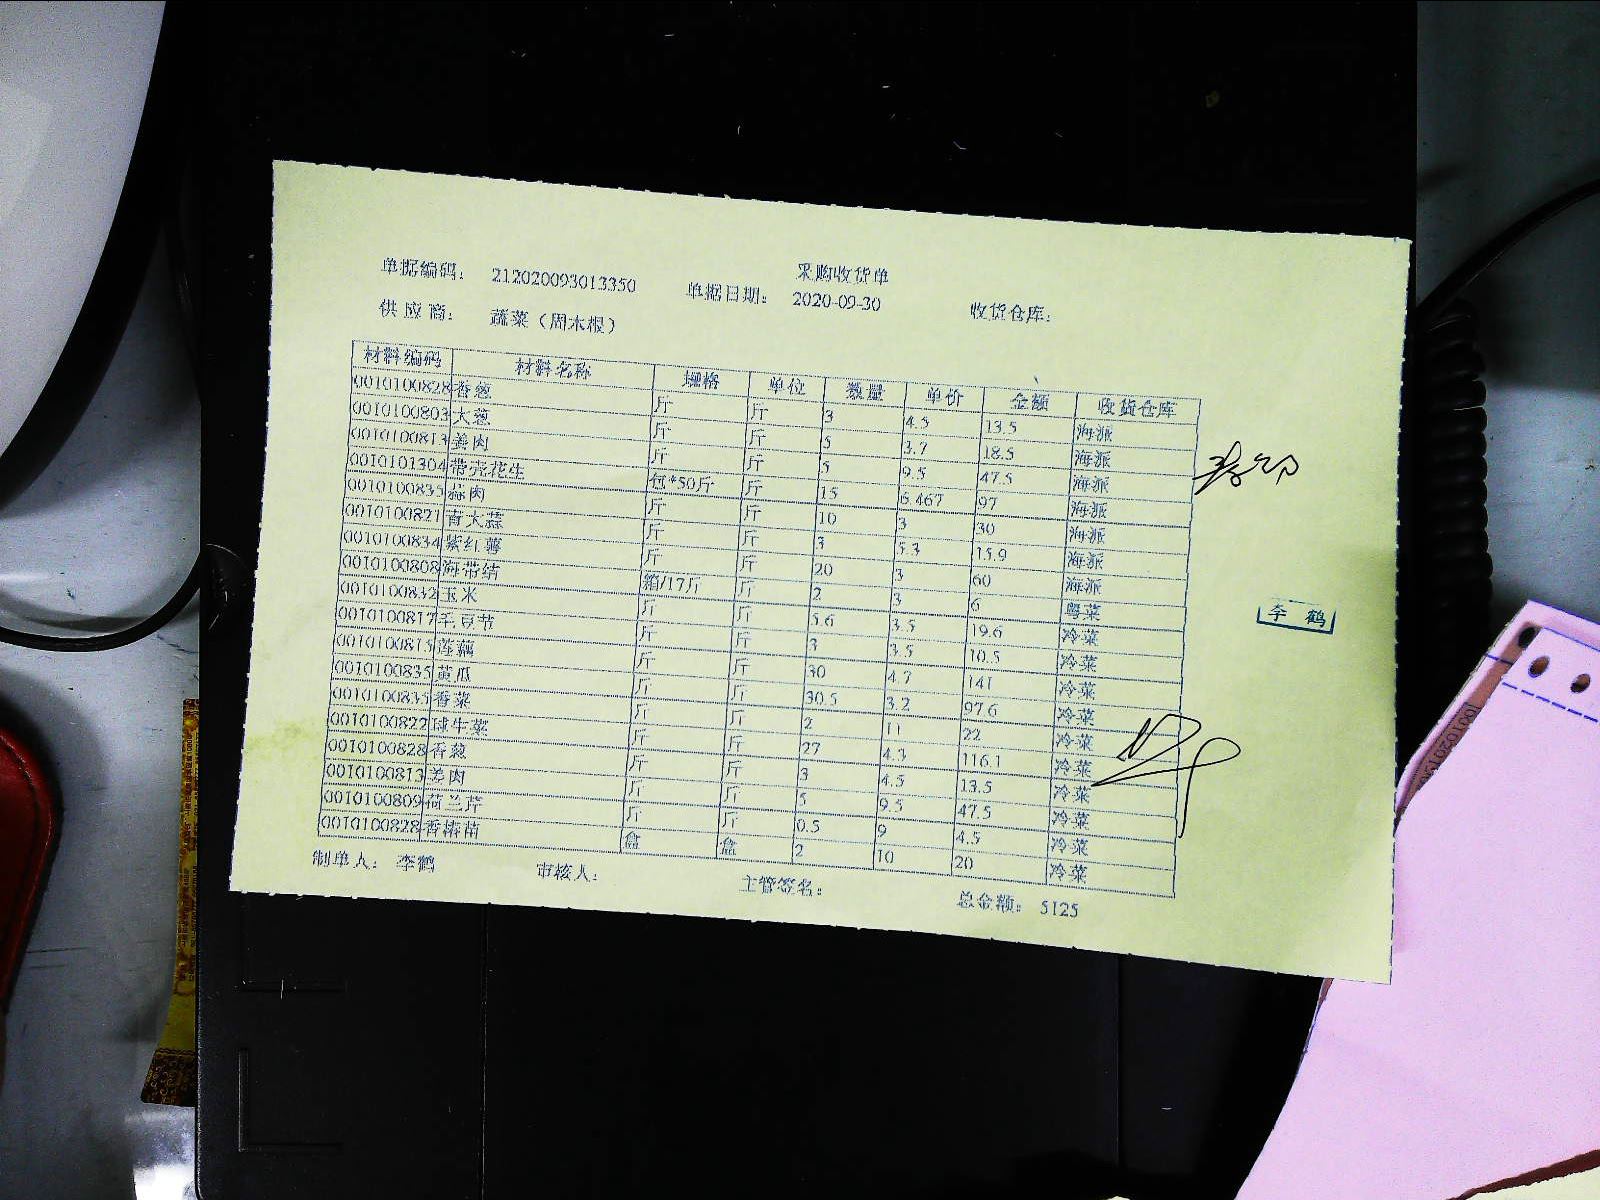 采购收货单
单据编码： 212020093013350 单据日期： 2020-09-30 收货仓库：
供应商： 蔬菜（周木根）
材料编码 材料名称 规格 单位 数量 单价 金额 收货仓库
0010100828 香葱 斤 斤 3 4.5 13.5 海派
0010100803 大葱 斤 斤 5 3.7 18.5 海派
0010100813 姜肉 斤 斤 5 9.5 47.5 海派
0010101304 带壳花生 包*50斤 斤 15 6.467 97 海派
0010100835 蒜肉 斤 斤 10 3 30 海派
0010100821 青大蒜 斤 斤 3 5.3 15.9 海派
0010100834 紫红薯 斤 斤 20 3 60 海派
0010100808 海带结 箱/17斤 斤 2 3 6 粤菜
0010100832 玉米 斤 斤 5.6 3.5 19.6 冷菜
0010100817 毛豆节 斤 斤 3 3.5 10.5 冷菜
0010100815 莲藕 斤 斤 30 4.7 141 冷菜
0010100835 黄瓜 斤 斤 30.5 3.2 97.6 冷菜
0010100835 香菜 斤 斤 2 11 22 冷菜
0010100822 球生菜 斤 斤 27 4.3 116.1 冷菜
0010100828 香葱 斤 斤 3 4.5 13.5 冷菜
0010100813 姜肉 斤 斤 5 9.5 47.5 冷菜
0010100809 荷兰芹 斤 斤 0.5 9 4.5 冷菜
0010100828 香椿苗 盒 盒 2 10 20 冷菜
制单人： 李鹤 审核人： 主管签名： 总金额： 5125
李鹤